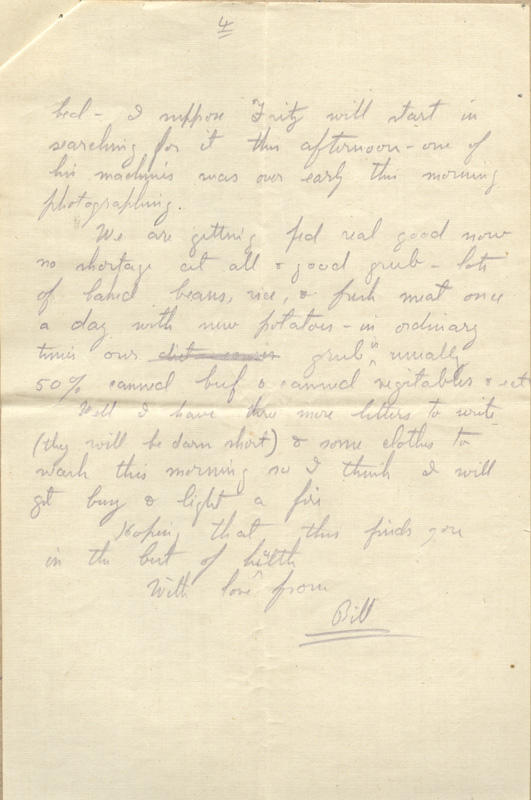 4
bed - I suppose Fritz will start in
searching for it this afternoon - one of
his machines was over early this morning
photographing.
We are getting fed real good now
no shortage at all & good grub - lots
of baked beans, rice, & fresh meat once
a day with new potatoes - in ordinary
times our grub is usually
50% canned beef & canned vegitables & eat
Well I have three more letters to write
(they will be darn short) & some clothes to
wash this morning so I think I will
get busy & light a fire
Hoping that this finds you
in the best of health
With love from
Bill